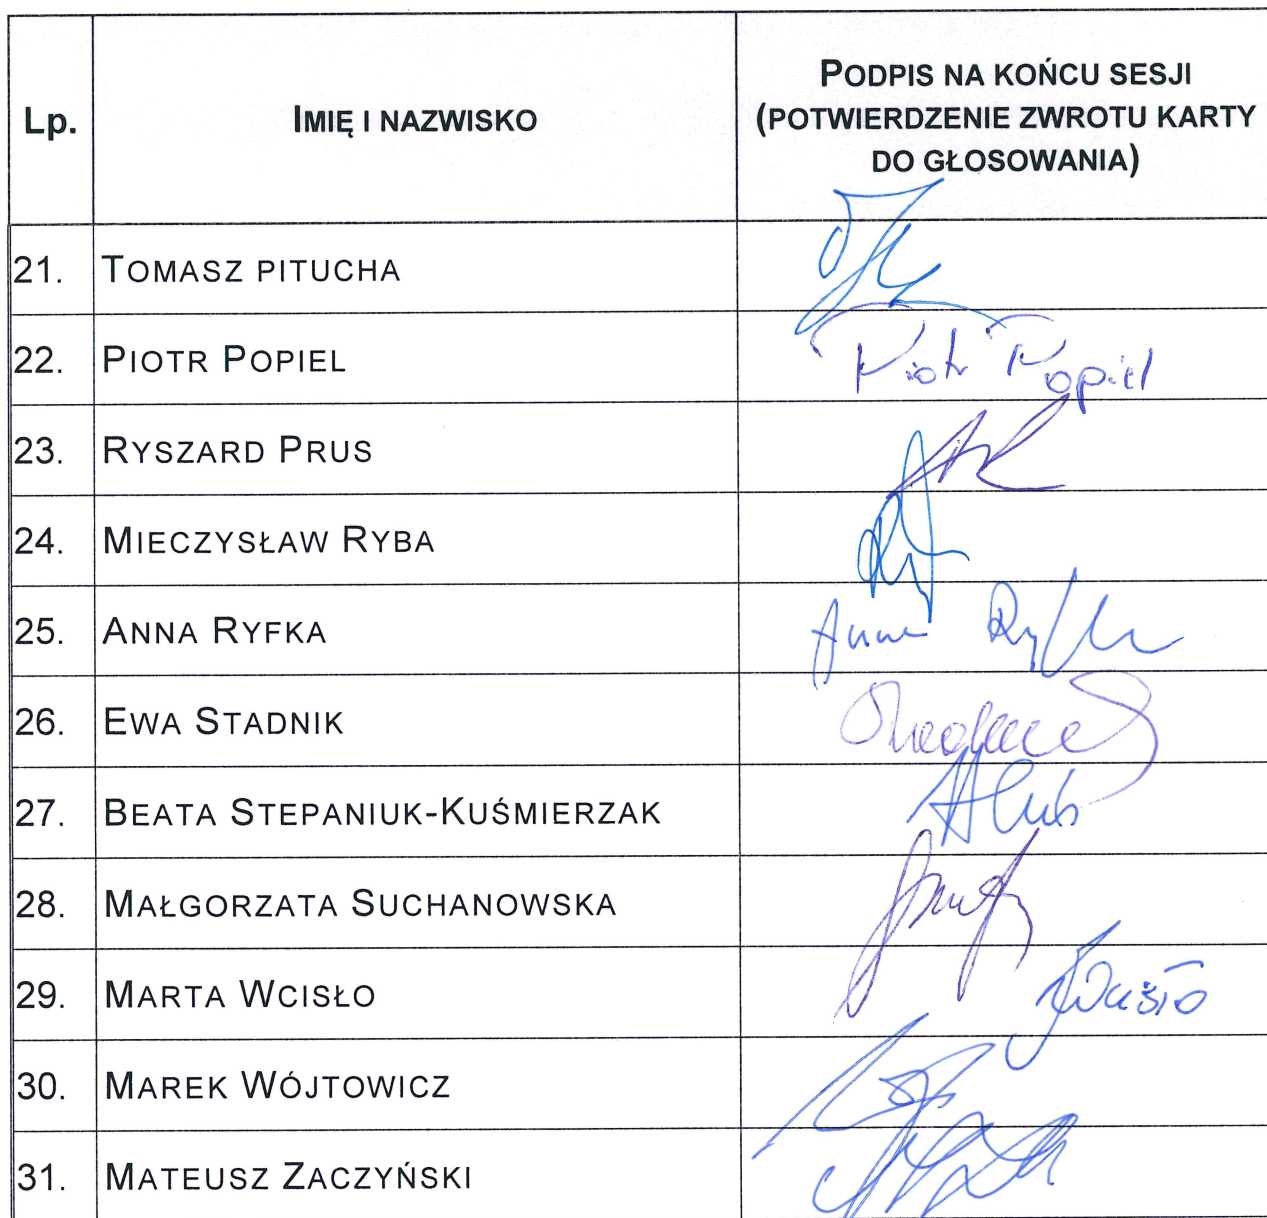 Lp.
IMIĘ I NAZWISKO
PODPIS NA KOŃCU SESJI
(POTWIERDZENIE ZWROTU KARTY
DO GŁOSOWANIA)
21. TOMASZ PITUCHA
22. PIOTR POPIEL Piotr Popiel
23. RYSZARD PRUS
24. MIECZYSŁAW RYBA
25. ANNA RYFKA Anna
26. EWA STADNIK
27. BEATA STEPANIUK-KUŚMIERZAK
28. MAŁGORZATA SUCHANOWSKA
29. MARTA WCISŁO
30. MAREK WÓJTOWICZ
31. MATEUSZ ZACZYŃSKI